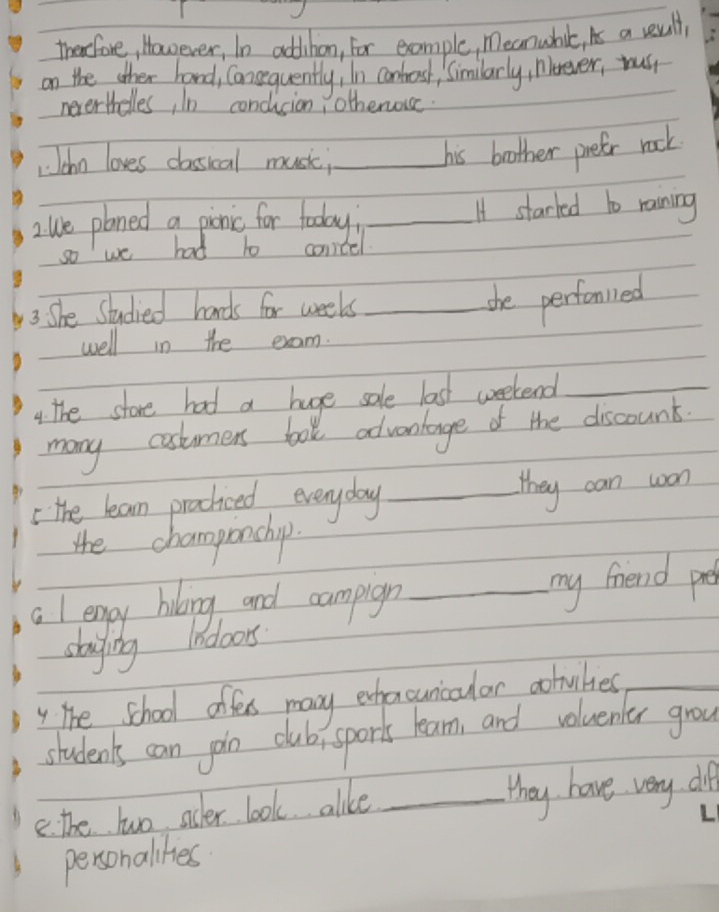 Therefore, However, In addition, For example, Meanwhile, As a result,
on the other hand, Consequently, In contrast, Similarly, Moreover, thus,
neverthelles, In conclusion, otherwise.
1. John loves classical music; ______ his brother prefer rock.
2. We planed a picnic for today; ______ It started to raining
so we had to cancel.
3. She studied hards for weeks ______ she performed
well in the exam.
4. The store had a huge sale last weekend ______
many costumers took advantage of the discounts.
5. the team practiced everyday ______ they can won
the championchip.
6. I enjoy hiking and campign ______ my friend pref
staying Indoors.
7. The school offers many extracurricular activities ______
students can join club, sports team, and volunteer grou
8. The two sister look alike ______ they have very diff
LI
personalities.